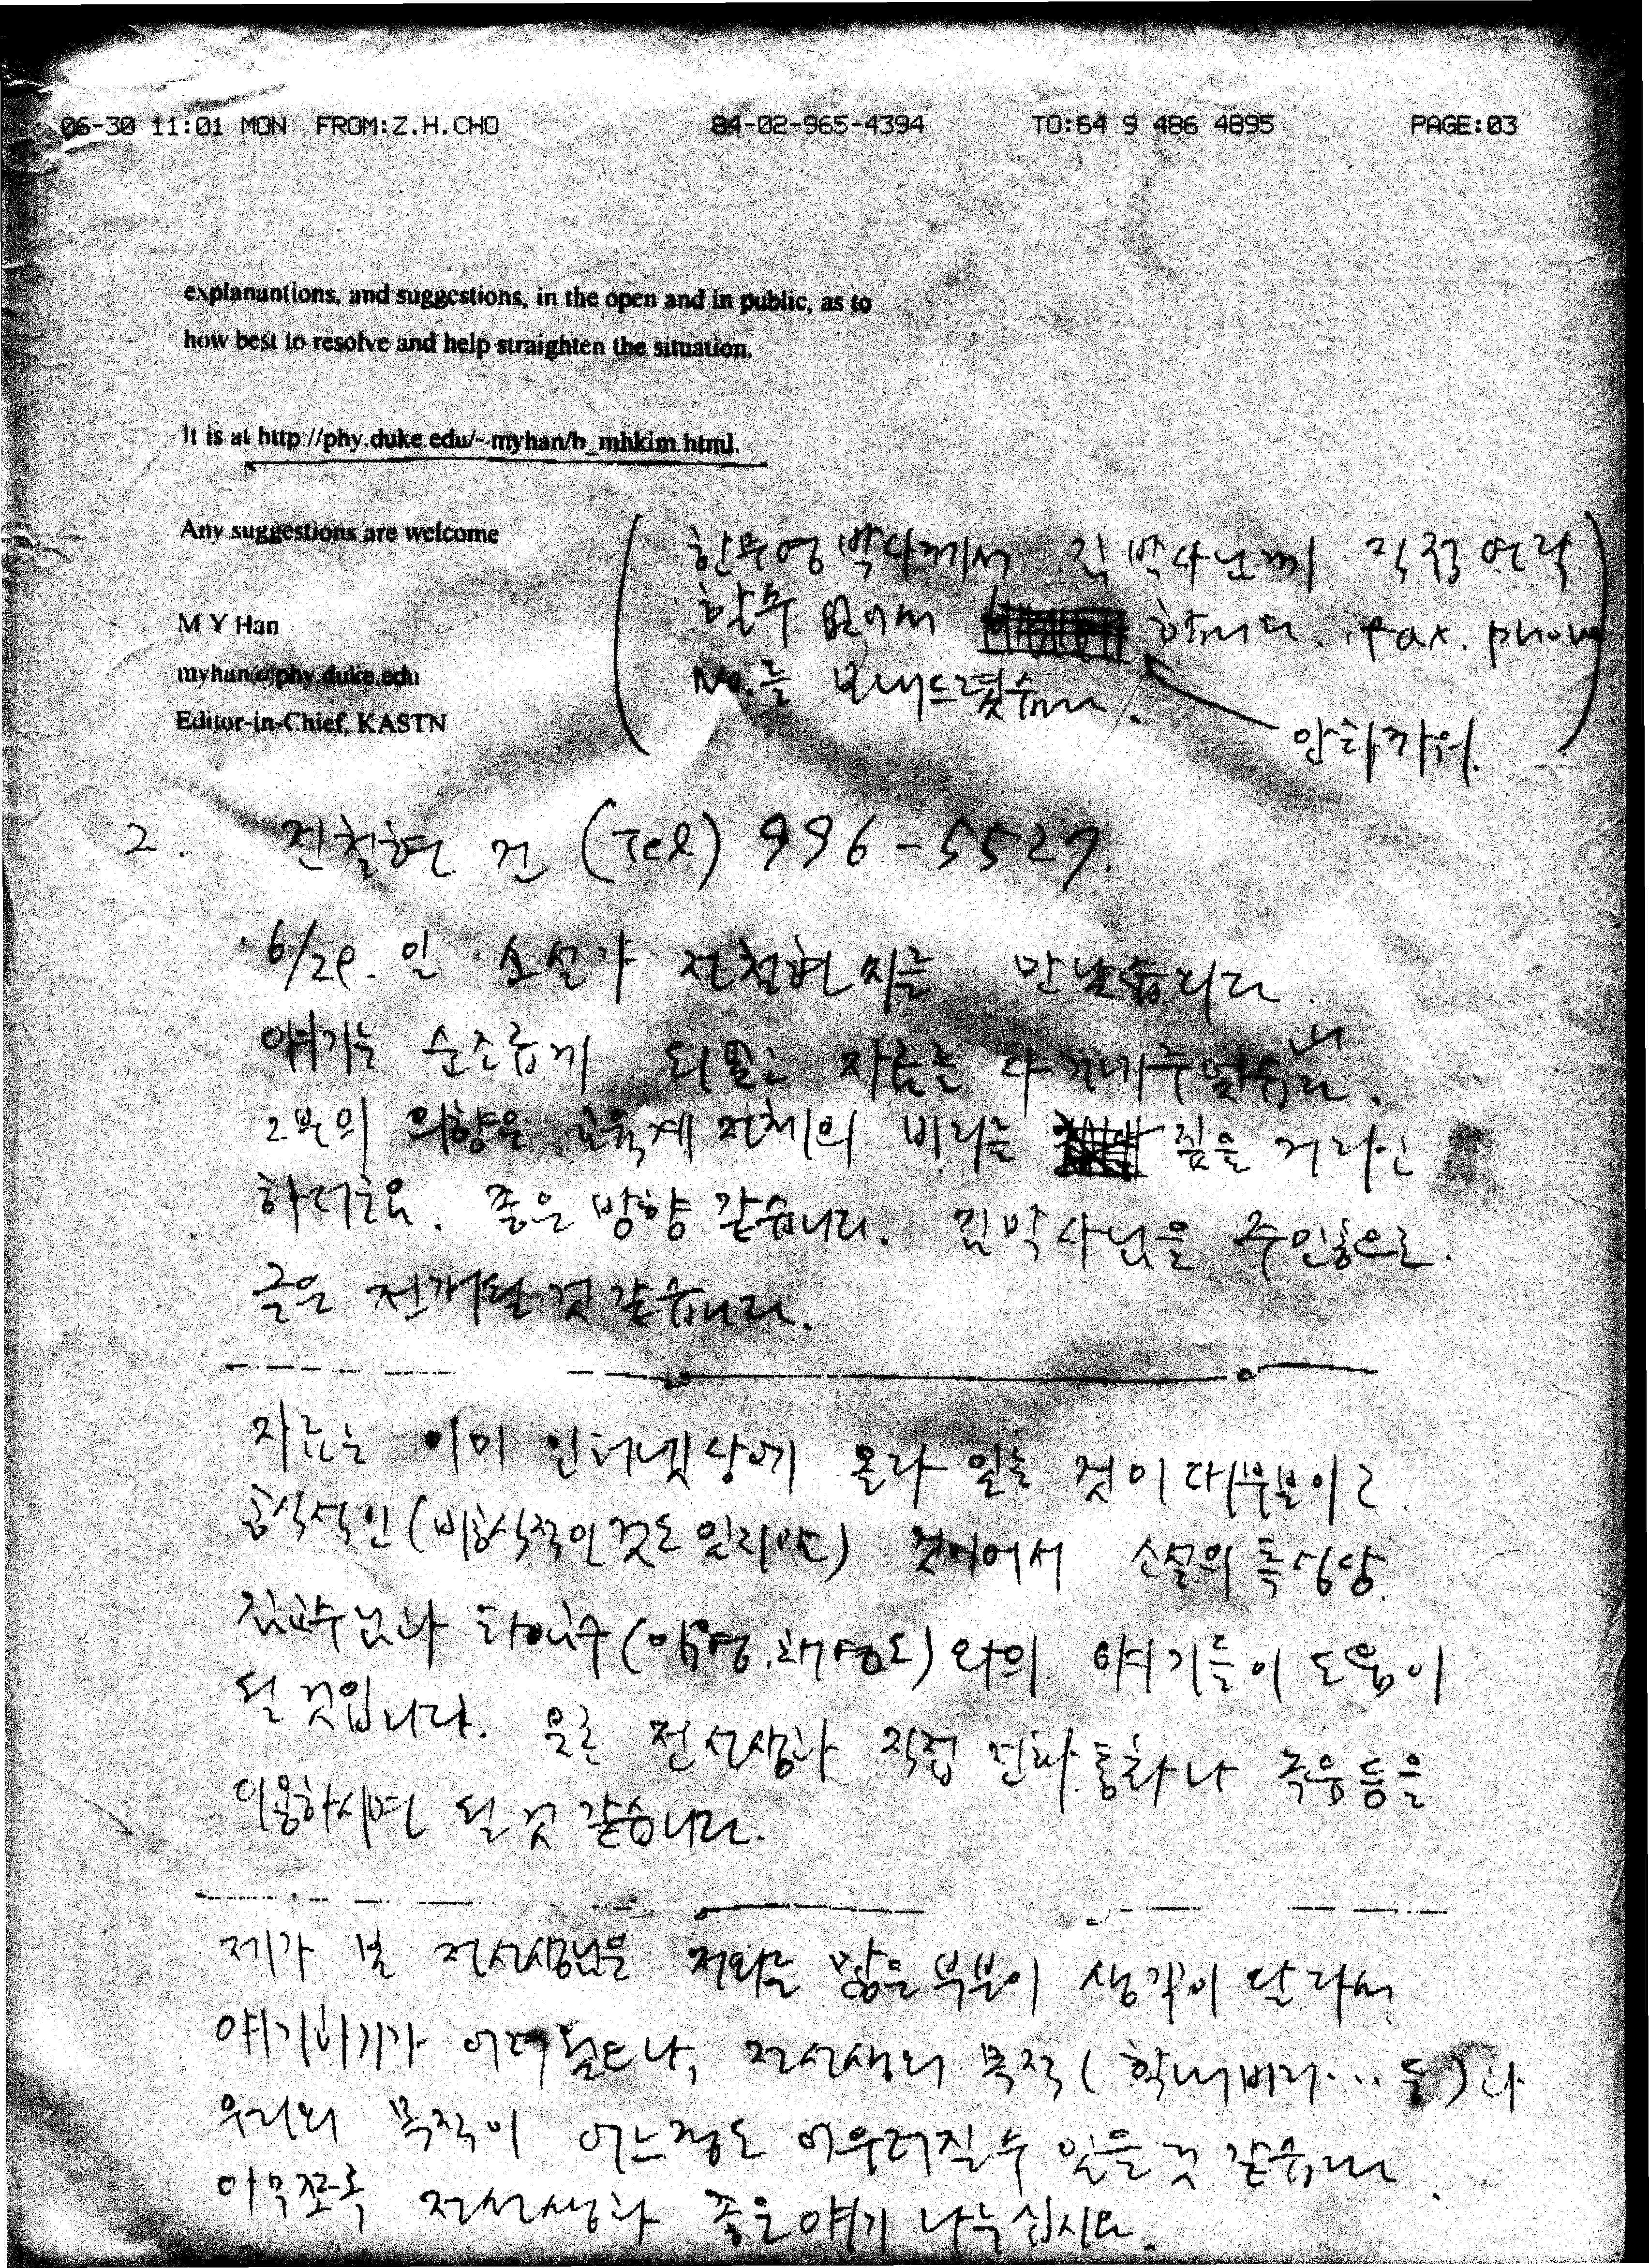 06-30 11:01 MON FROM:Z.H.CHO 84-02-965-4394 TO:64 9 486 4895 PAGE:03
explanantions, and suggestions, in the open and in public, as to
how best to resolve and help straighten the situation.
It is at http://phy.duke.edu/~myhan/h_mhkim.html.
Any suggestions are welcome
M Y Han
myhan@phy.duke.edu
Editor-in-Chief, KASTN
한무영 박사께서 김박사님께 직접 연락
할 수 없어서 합니다. Fax. phone
No.를 보내드렸습니다.
안타까워.
2. 전철현 건 (Tel) 996-5527.
6/29. 일 소설가 전철현씨를 만났습니다.
얘기는 순조롭게 자료를 다
그분의 의향은 교육계 전체의 비리를 짚을 거라고
하더군요. 좋은 방향 같습니다. 김박사님을 주인공으로.
글은 전개될 것 같습니다.
자료는 이미 인터넷상에 올라 있는 것이 대부분이고.
공식적인 (비공식적인 것도 있지만) 것이어서 소설의 특성상.
김교수님과 와의 얘기들이 도움이
될 것입니다. 전선생과 직접 전화통화나 등을
이용하시면 될 것 같습니다.
제가 본 전선생님은 저와는 많은 부분이 생각이 달라서
얘기하기가 전선생의 목적 (학내비리... 등)과
우리의 목적이 어느정도 어우러질 수 있을 것 같습니다.
아무쪼록 전선생과 좋은 얘기 나누십시요.